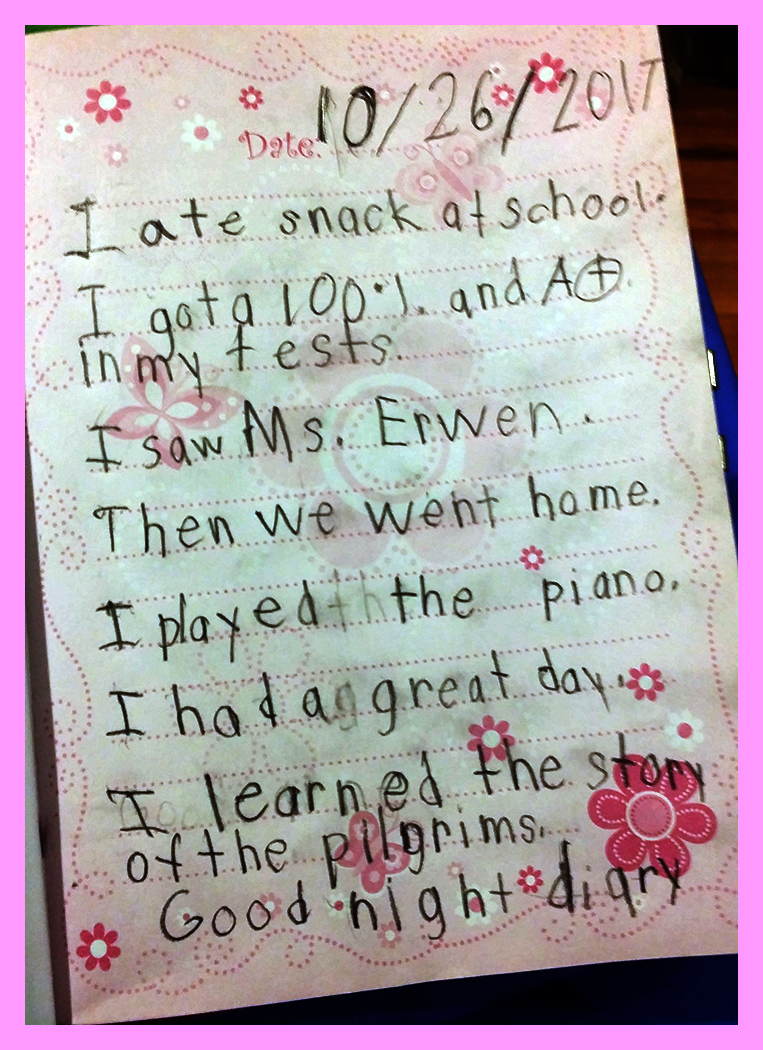 Date: 10/26/2017
I ate snack at school.
I got a 100%. and A+.
in my tests.
I saw Ms. Erwen.
Then we went home.
I played the piano.
I had a great day.
I learned the story
of the pilgrims.
Good night diary